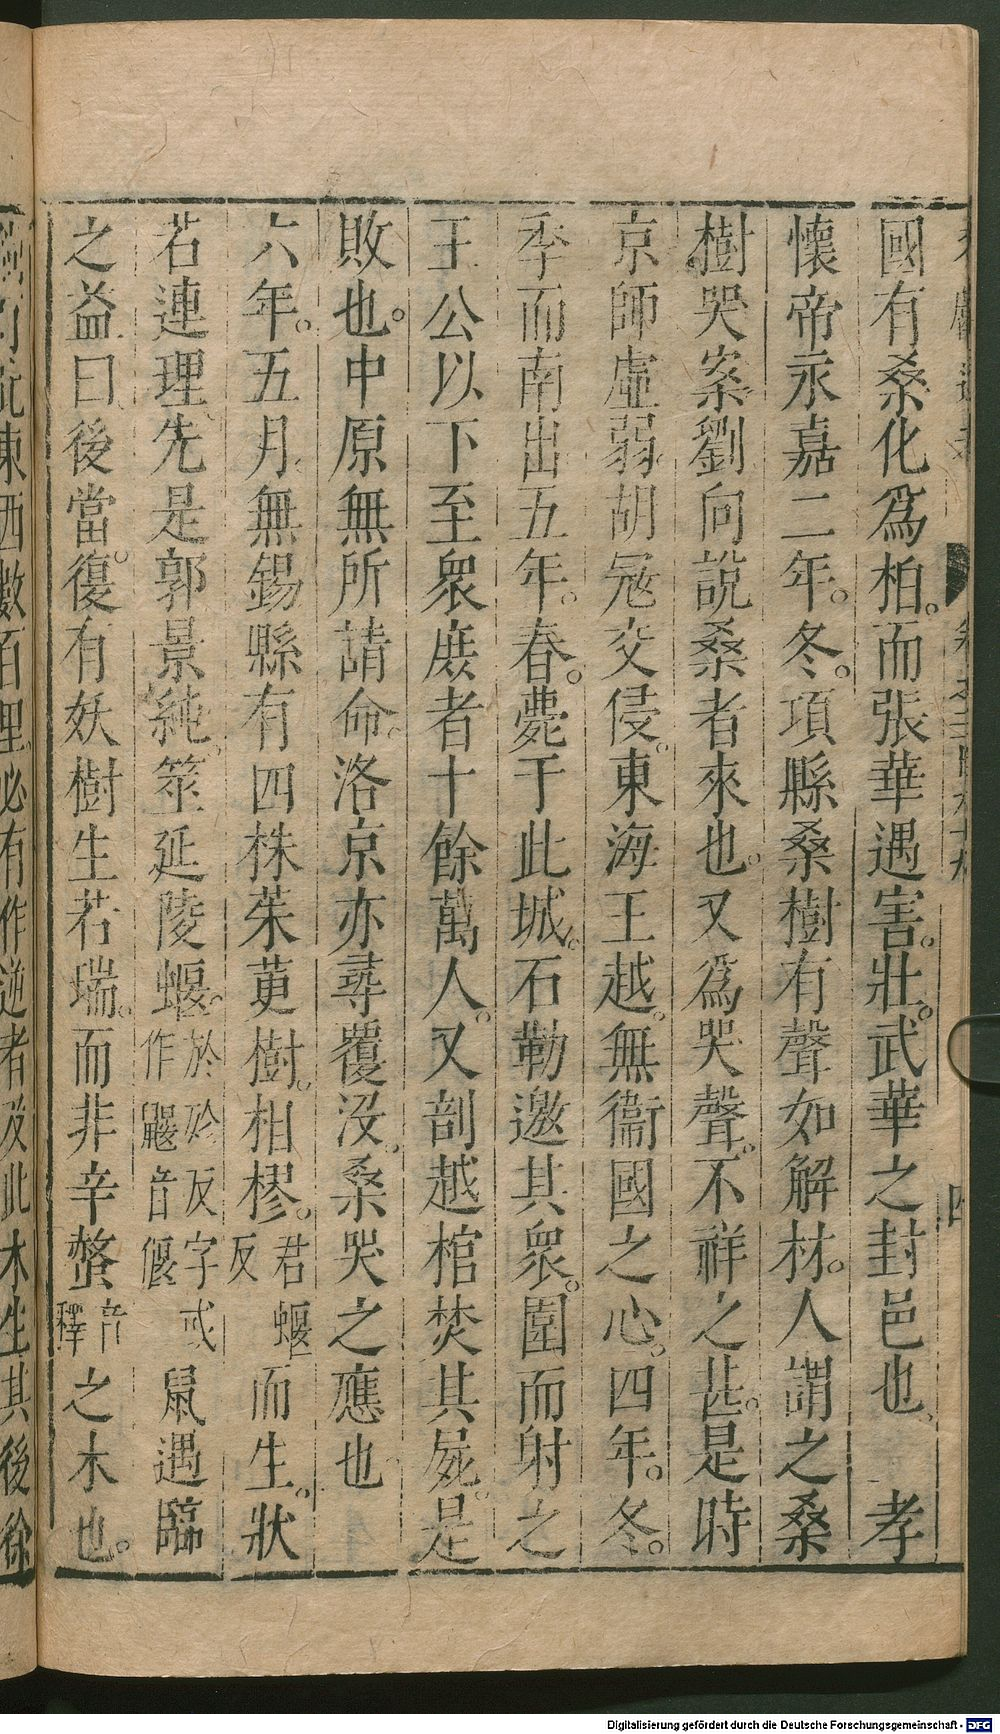 國有桑化爲柏。而張華遇害。壯武華之封邑也 孝
懷帝永嘉二年。冬。項縣桑樹有聲如解材。人謂之桑
樹哭案劉向說桑者來也。又爲哭聲。不祥之甚。是時
京師虛弱。胡寇交侵。東海王越。無衛國之心。四年。冬。
季而南出五年。春。薨于此城。石勒邀其衆。圍而射之
王公以下至衆庶者十餘萬人。又剖越棺焚其屍。是
敗也。中原無所請命。洛京亦尋覆沒。桑哭之應也
六年。五月。無錫縣有四株茱萸樹。相樛。君蝘反而生。狀
若連理先是郭景純。筮延陵蝘。於殄反字或作鼴音偃鼠遇臨
之益曰、後當。復有妖樹生若瑞。而非辛螫音釋之木也。
東西數百里。必有作逆者及此木生其後徐
Digitalisierung gefördert durch die Deutsche Forschungsgemeinschaft - DFG